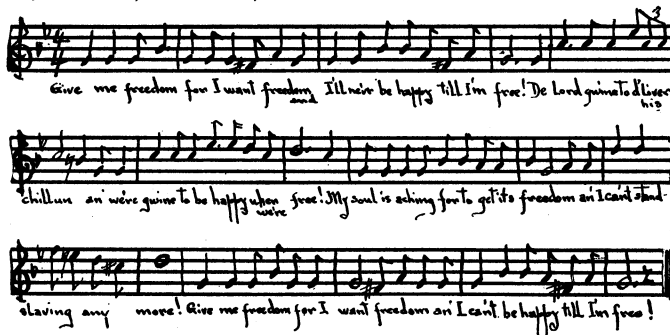 Give me freedom for I want freedom and I'll never be happy till I'm free! De Lord guine to d'liver his
chillun an' we're guine to be happy when we're free! My soul is aching for to get its freedom an' I can't stand
slaving any more! Give me freedom for I want freedom an' I can't be happy till I'm free!